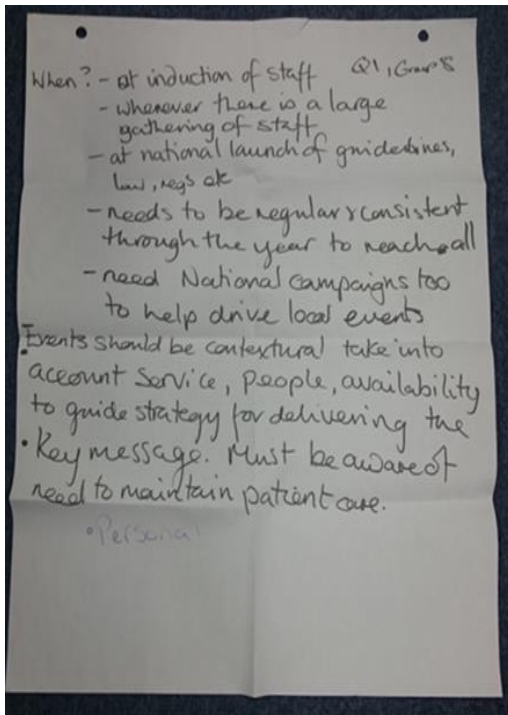 Q1, Group 8
When? - at induction of staff
- whenever there is a large
gathering of staff
- at national launch of guidelines,
law, regs etc
- needs to be regular & consistent
through the year to reach all
- need National campaigns too
to help drive local events
• Events should be contextural take into
account service, people, availability
to guide strategy for delivering the
• Key message. Must be aware of
need to maintain patient care.
• Personal